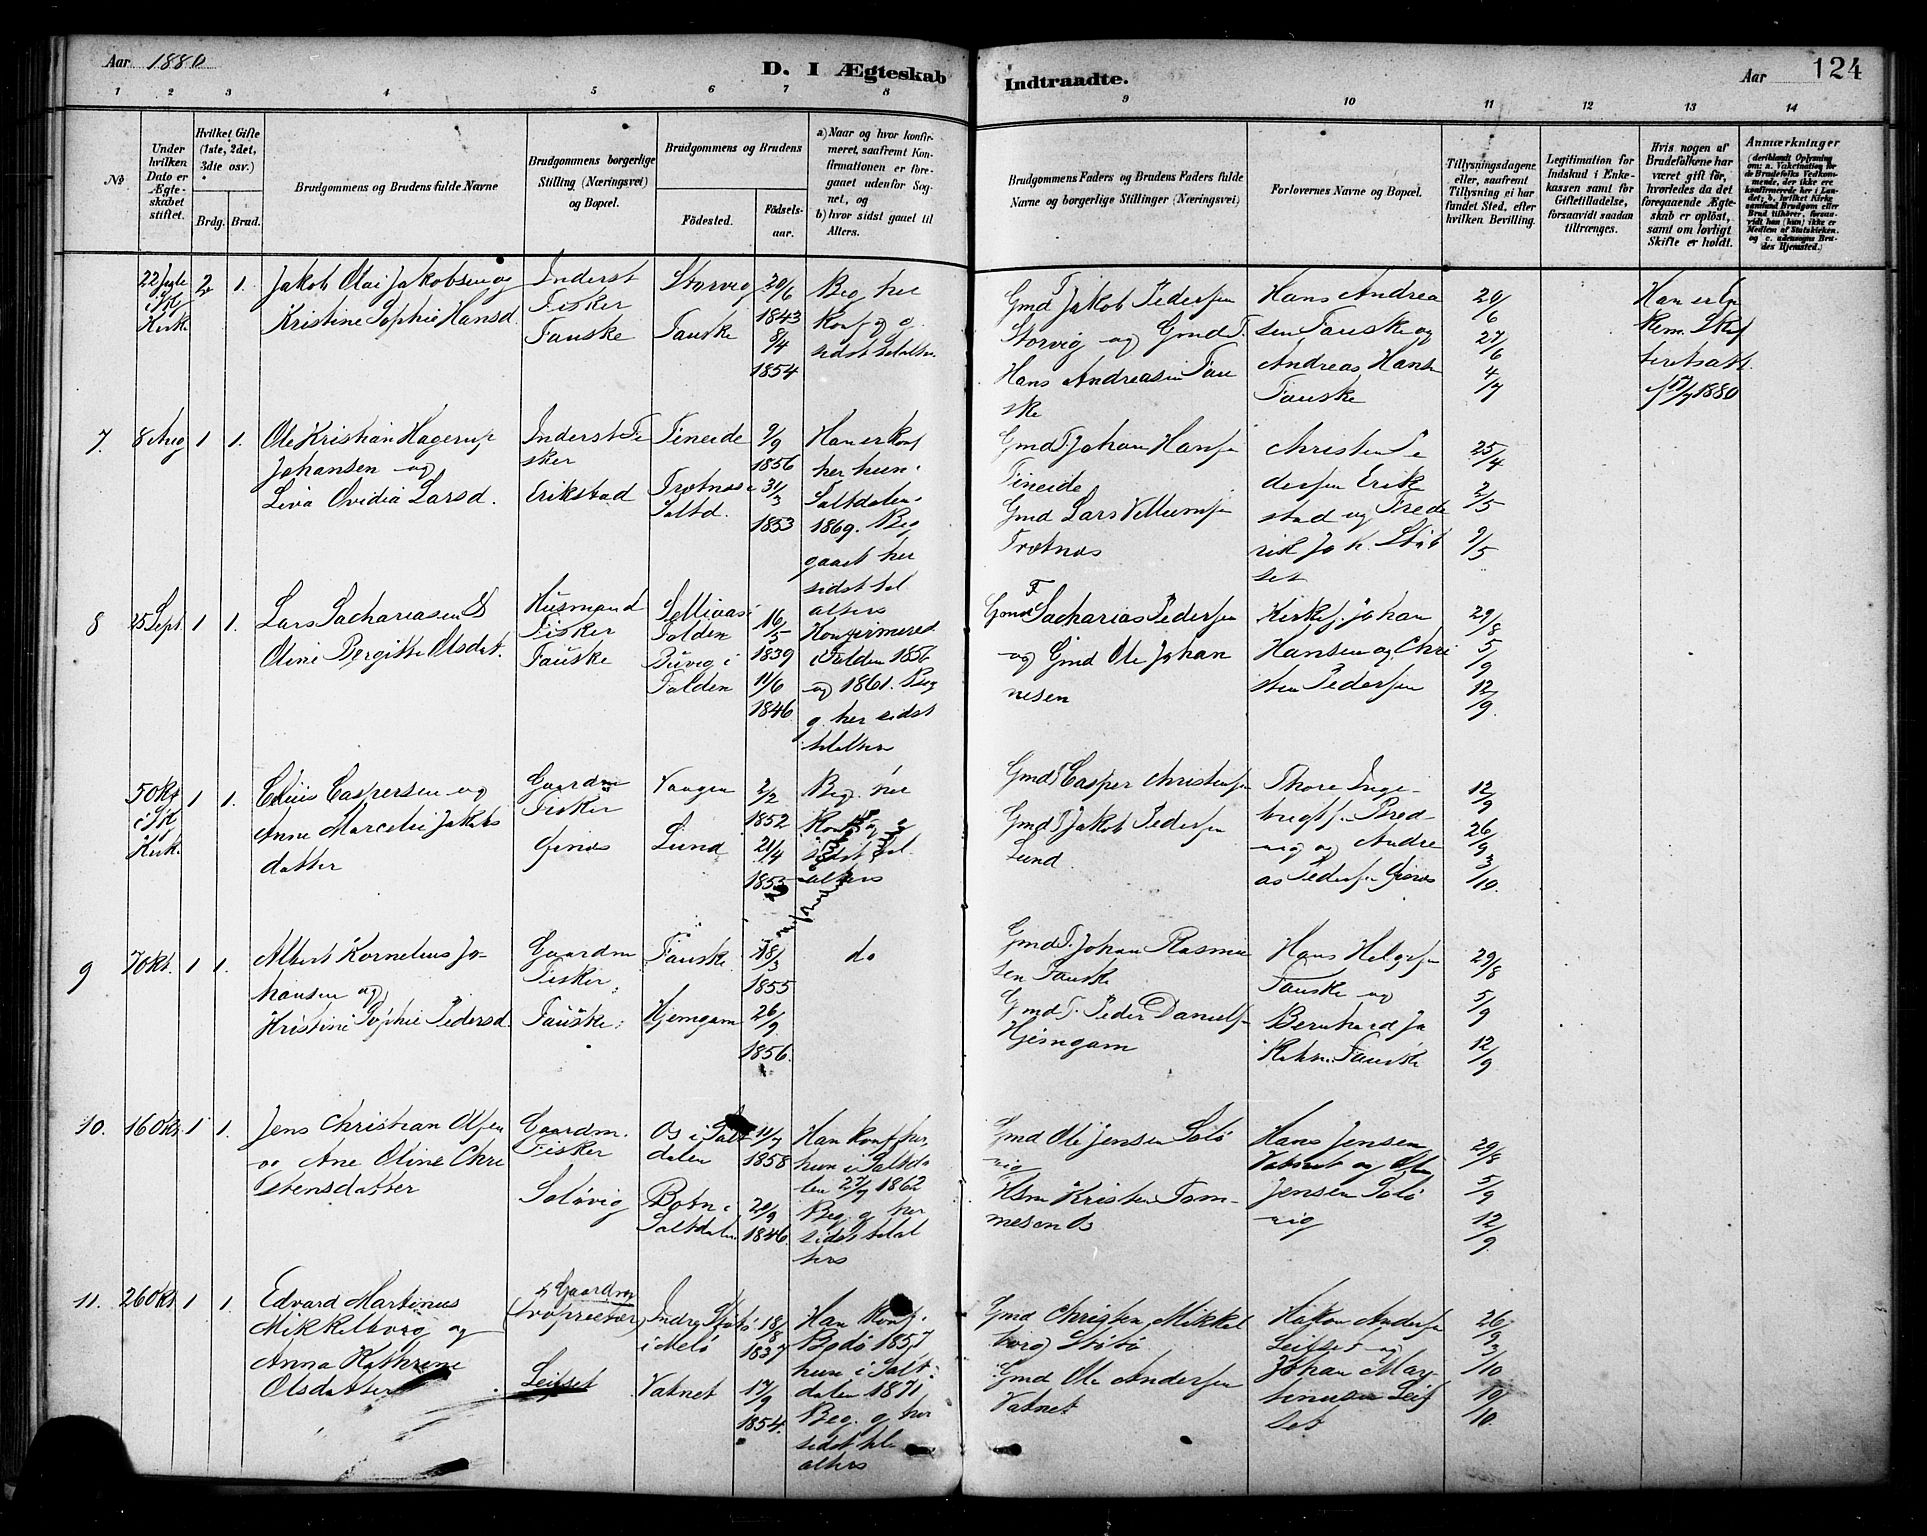 Aar 1880
D. I Ægteskab
Indtraadte.
Aar
124
1 2 3 4 5 6 7 8 9 10 11 12 13 14
No
Under hvilken Dato er Ægteskabet stiftet.
Hvilket Gifte (1ste, 2det, 3die osv.)
Brdg. Brud.
Brudgommens og Brudens fulde Navne
Brudgommens borgerlige Stilling (Næringsvei) og Bopæl.
Brudgommens og Brudens
Födested.
Födselsaar.
a) Naar og hvor konfirmeret, saafremt Konfirmationen er foregaaet udenfor Sognet, og
b) hvor sidst gaaet til Alters.
Brudgommens Faders og Brudens Faders fulde Navne og borgerlige Stillinger (Næringsvei)
Forlovernes Navne og Bopæl.
Tillysningsdagene eller, saafremt Tillysning ei har fundet Sted, efter hvilken Bevilling.
Legitimation for Indskud i Enkekassen samt for Giftetilladelse, forsaavidt saadan tiltrænges.
Hvis nogen af Brudefolkene har været gift för, hvorledes da det foregaaende Ægteskab er oplöst, samt om lovligt Skifte er holdt.
Anmærkninger
22 Jule
i Sk
Kirk
2 1.
Jakob Olai Jakobsen og
Kristine Sophie Hansd.
Inderst
Fisker
Fauske
Storvig
Fauske
20/6
1843
8/4
1854
Beg her
Konf. og
sidst til alters
Gmd F Jakob Pedersen
Storvig og Gmd F.
Hans Andreasen Fau
ske
Hans Andrea
sen Fauske og
Andreas Hans
Fauske
20/6
27/6
4/7
Han er En
kem. Skif
teretsatt.
1880
7. 8 Aug 1 1.
Ole Kristian Hagerup
Johansen og
Liva Ovidia Larsd.
Inderst Fi
sker
Erikstad
Fineide
Trotnæs i
Saltd.
9/9
1856
31/3
1853
Han er Konf
her hun i
Saltdalen
1869. Beg
gaaet her
sidst til
alters
Gmd F. Johan Hansen
Fineide
Gmd Lars Villumsen
Trætnæs
Christen Pe
dersen Erik
stad og Frede
rik Jo K. Stöt
set
25/4
2/5
9/5
8 25 Sept 1 1.
Lars Sachariasen &
Oline Bergitte Olsdat.
Husmand
Fisker
Fauske
Folden
Buvig i
Folden
16/5
1839
11/6
1846
Konfirmered
i Folden 1856
og 1861. Beg
g. her sidst
til alters
Gmd F. Sacharias Pedersen
og Gmd Ole Johan
nesen
Kirkes. Johan
Hansen og Chri
sten Pedersen
29/8
5/9
12/9.
5 Okt
i Sk
Kirk.
1 1.
Caspersen og
Anne Marselie Jakobs
datter
Gaardm
Fisker
Gjenes
Vaagen
Lund
2/2
1852
21/4
1853
Beg. her
Konf og
sidst til
alters
Gmd F Casper Christensen
Gmd F Jakob Pedersen
Lund.
Thore Inge
brigts. Bred-
vig og Andre
as Pedersen Gjenes
12/9
26/9
3/10.
9 7 Okt. 1 1.
Albert Kornelius Jo-
hansen og
Kristine Sophie Pedersd.
Gaardm
Fisker
Fauske
Fauske
Hjemgam
18/3
1855
26/9
1856.
do
Gmd F. Johan Rasmus
sen Fauske
Gmd F. Peder Daniels
Hjemgam
Hans Helgesen
Fauske og
Bernhard Ja
Kobsn. Fauske
29/8
5/9
12/9
10. 16 Okt 1 1.
Jens Christian Olsen
og Ane Oline Chri
stensdatter
Gaardm.
Fisker
Solövig
Os i Salt
dalen
Botn i
Saltdalen
11/7
1858
20/9
1846.
Han Konf her,
hun i Saltda
len 27/9 1862
Beg. g. her
sidst til al
ters
Gmd Ole Jensen Solö
vig
Hsm Kristen Tom-
mesen Os
Hans Jensen
Vatnet og Ole
Jensen Solö
vig
29/8
5/9
12/9.
11. 26 Okt 1 1.
Edvard Martinus
Mikkelborg og
Anna Kathrine
Olsdatter
& Gaardm
(Proprietær)
Leifset
Indre Stötö
i Melö
Vatnet
18/8
1837
17/9
1854.
Han Konf.
Bodö 1857
hun i Salt-
dalen 1871
Beg. g. her
sidst til
alters
Gmd Christen Mikkel
borg Stötö
Gmd Ole Andersen
Vatnet
Hakon Andersen
Leifset og
Johan Mar
tinusen Leif
set
26/9
3/10
10/10.